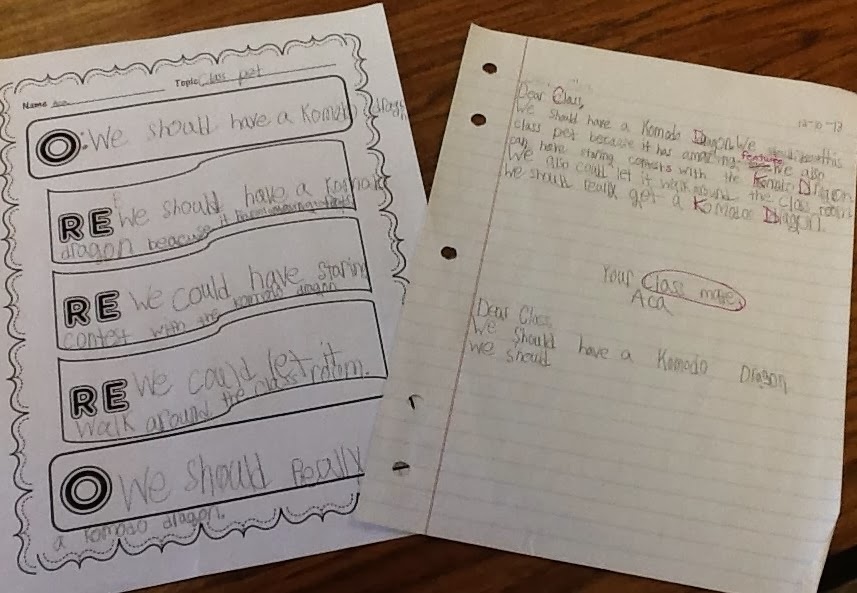 Name Aca Topic Class pet
O: We should have a Komoto drag
RE We should have a Komoto
dragon beacuse it
RE We could have staring
contest with the komoto dragon
RE We could let it
Walk around the class room.
O We should Really
a komodo dragon.
12-10-13
Dear Class,
We should have a Komodo Dragon. We this
class pet because it has amazing feature We also
can have staring contests with the Komoto Dragon
We also could let it walk around the class room
We should really get a Komodo Dragon.
Your Class mate,
Aca
Dear Class,
We should have a Komodo Dragon
We should